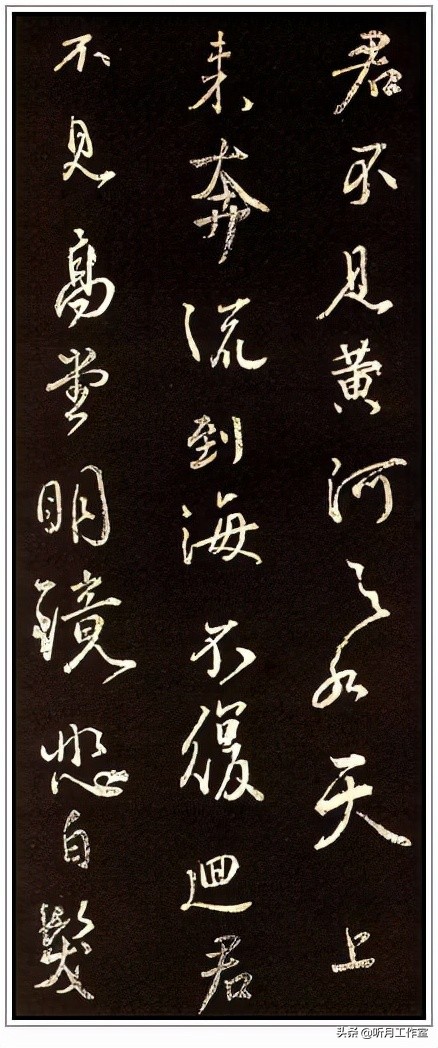 君不見黄河之水天上
来奔流到海不復迴君
不見高堂明鏡悲白髮
头条 @听月工作室